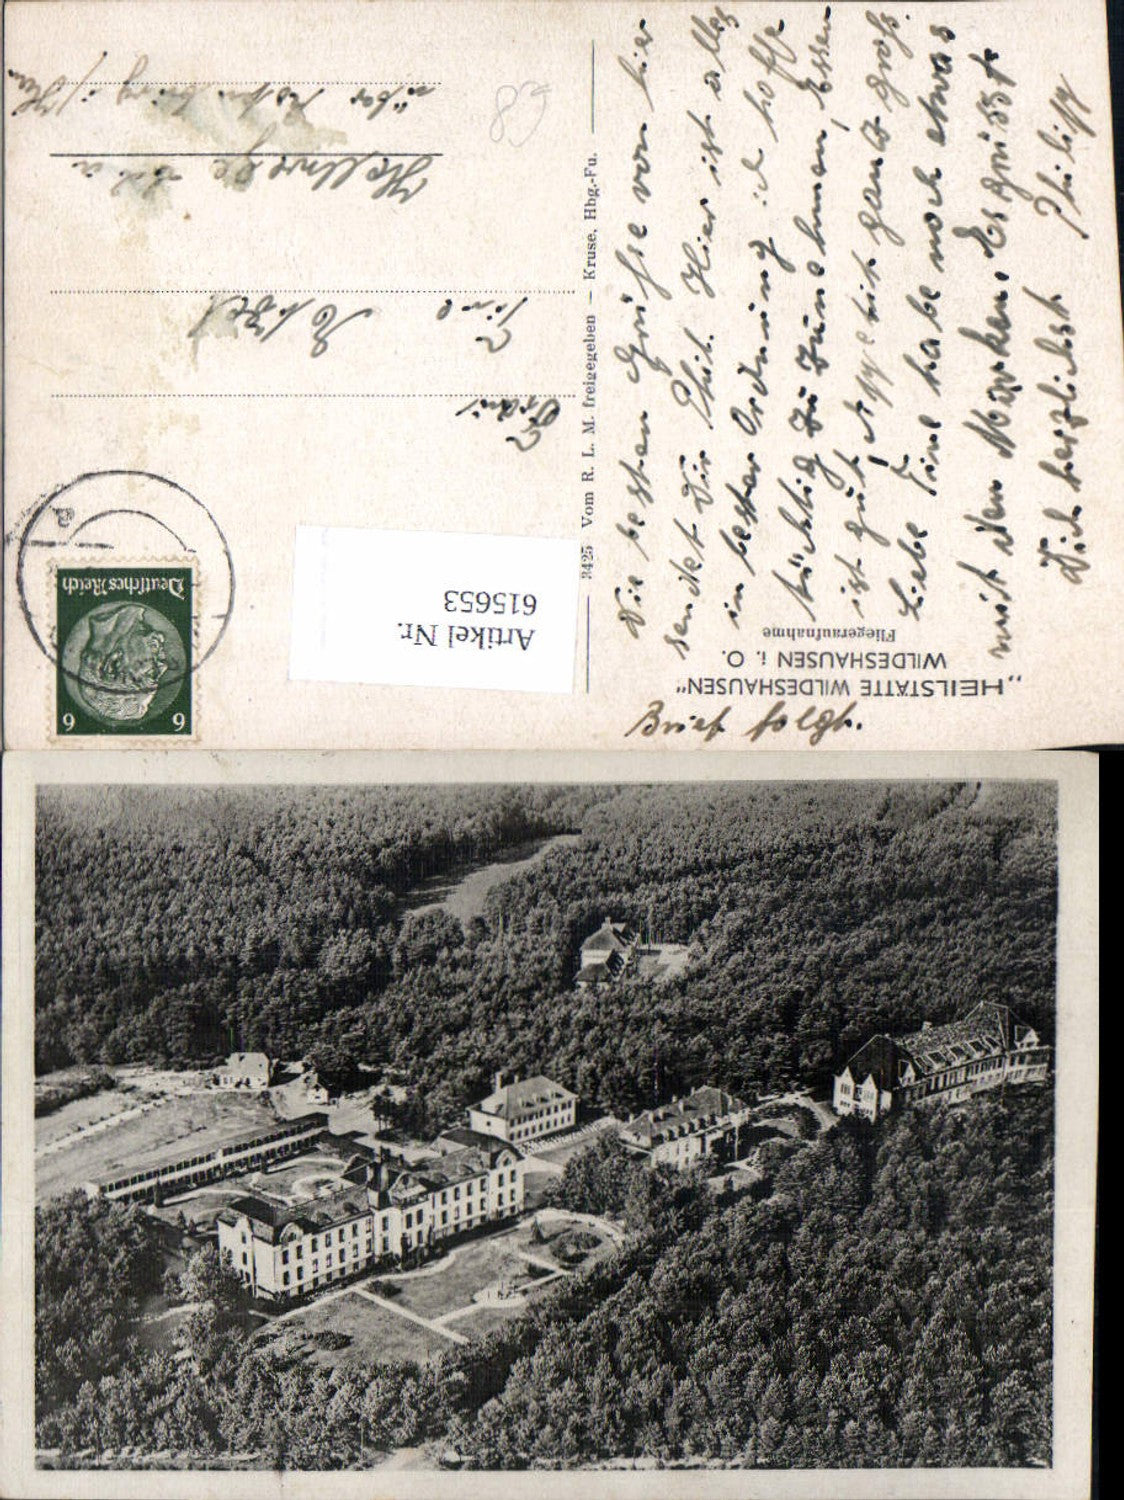 „HEILSTÄTTE WILDESHAUSEN"
WILDESHAUSEN i. O.
Fliegeraufnahme
Die besten Grüße von hier
sendet Dir Phil. Hier ist alles
in bester Ordnung ich hoffe
tüchtig zu zunehmen, Essen
ist gut Appetit ganz groß.
Liebe Tine habe noch etwas
mit den Nerven. Es grüßt
Dich herzlichst Philipp
Brief folgt.
3425 Vom R. L. M. freigegeben — Kruse, Hbg.-Fu.
Frau
Tine
Hellwege
über Rotenburg
Deutsches Reich
6 6
a
Artikel Nr.
615653